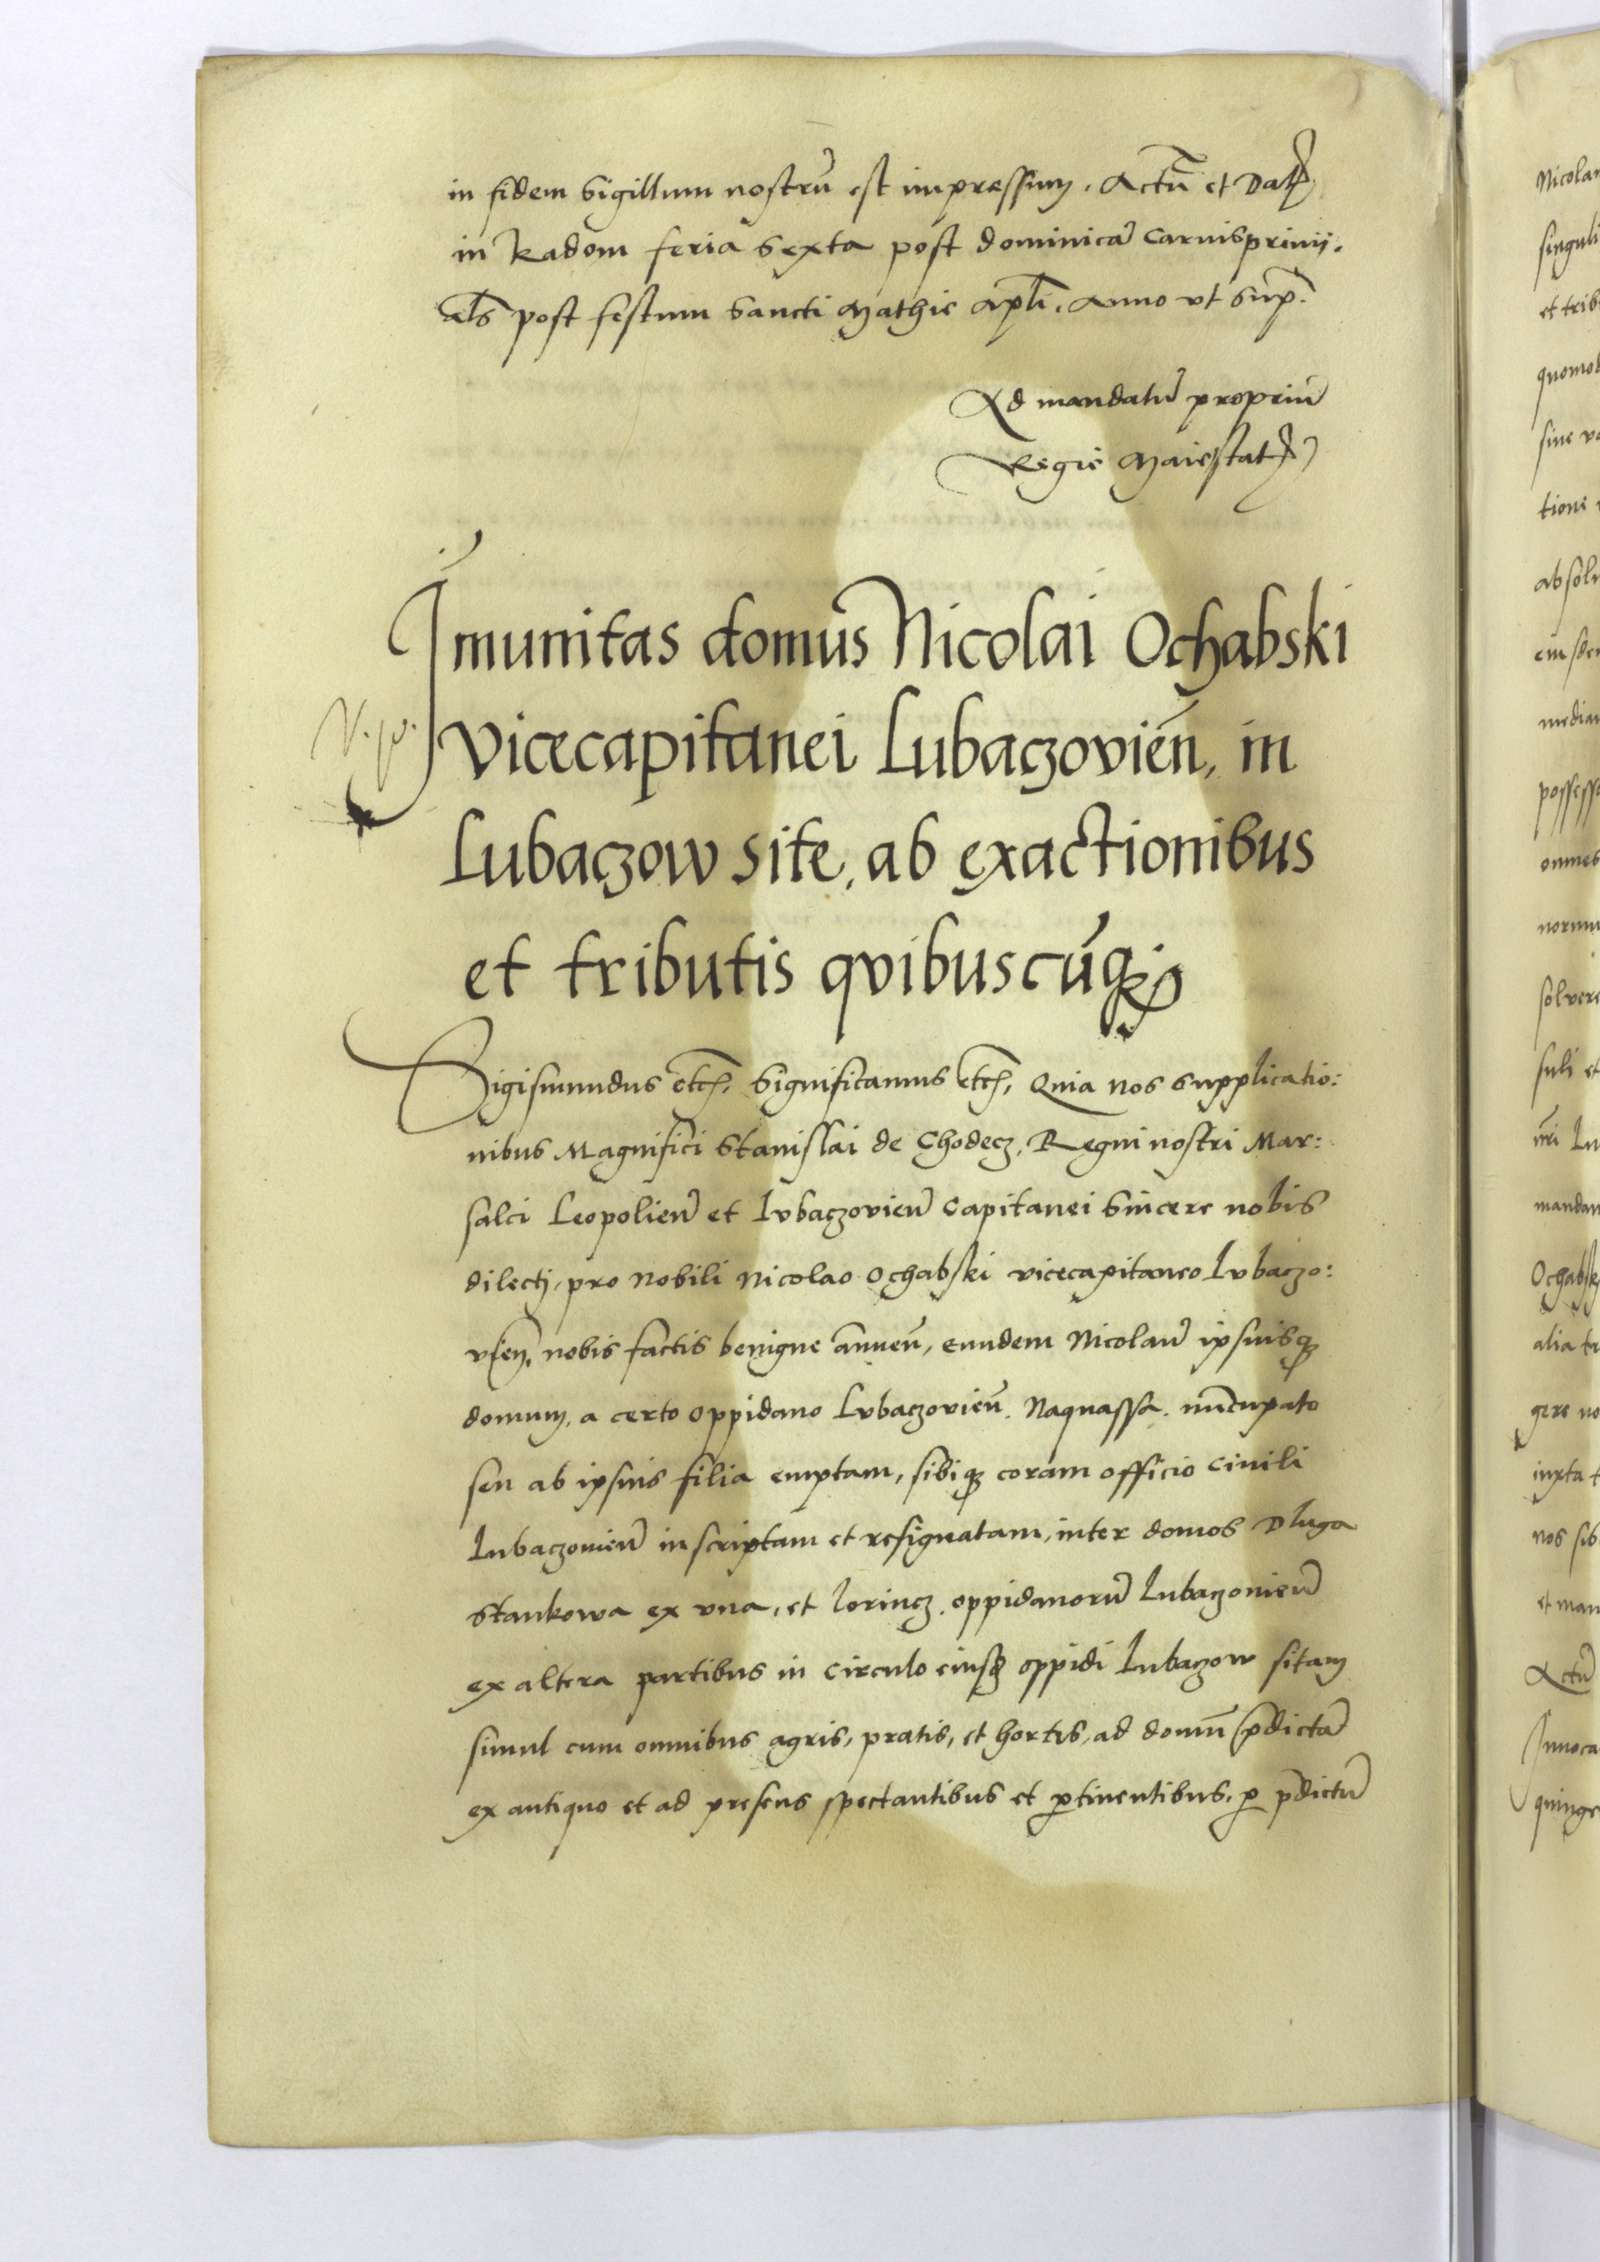 in fidem Sigillum nostrū est impressum. Actū et Dat
in Radom feria sexta post dominicā Carnisprivii.
als post festum Sancti Mathie Apli. Anno ut sup.
Ad mandatū propriū
Regie Maiestat
Imunitas domus Nicolai Ochabski
vicecapitanei Lubaczovien̄, in
Lubaczow site, ab exactionibus
et tributis quibuscūq;
Sigismundus etc, Significamus etc, Quia nos supplicatio:
nibus Magnifici Stanislai de Chodecz, Regni nostri Mar:
salci Leopolien̄ et Lvbaczovien̄ Capitanei Sincere nobis
dilecti, pro Nobili Nicolao Ochabski vicecapitaneo Lvbaczo:
vien, nobis factis benigne annuen̄, eundem Nicolaū ipsiusq;
domum, a certo oppidano Lvbaczovien̄. Naquassa. nuncupato
seu ab ipsius filia emptam, sibiq; coram officio Civili
Lubaczovien̄ inscriptam et resignatam, inter domos Dluga
Stankowa ex una, et Lorincz, oppidanorū Lubaczovien̄
ex altera partibus in circulo eiusd oppidi Lubaczow sitam
simul cum omnibus agris, pratis, et hortis, ad domū p̄dictā
ex antiquo et ad presens spectantibus et ptinentibus, p p̄dictū
Nicolau
singuli
et trib
quomod
sine
tione
absolu
eiusdem
median
possess
omnes
norum
solvere
suli et
nri Lu
mandam
Ochabsk
alia tr
gere no
iuxta t
nos sib
et man
Actū
quinge